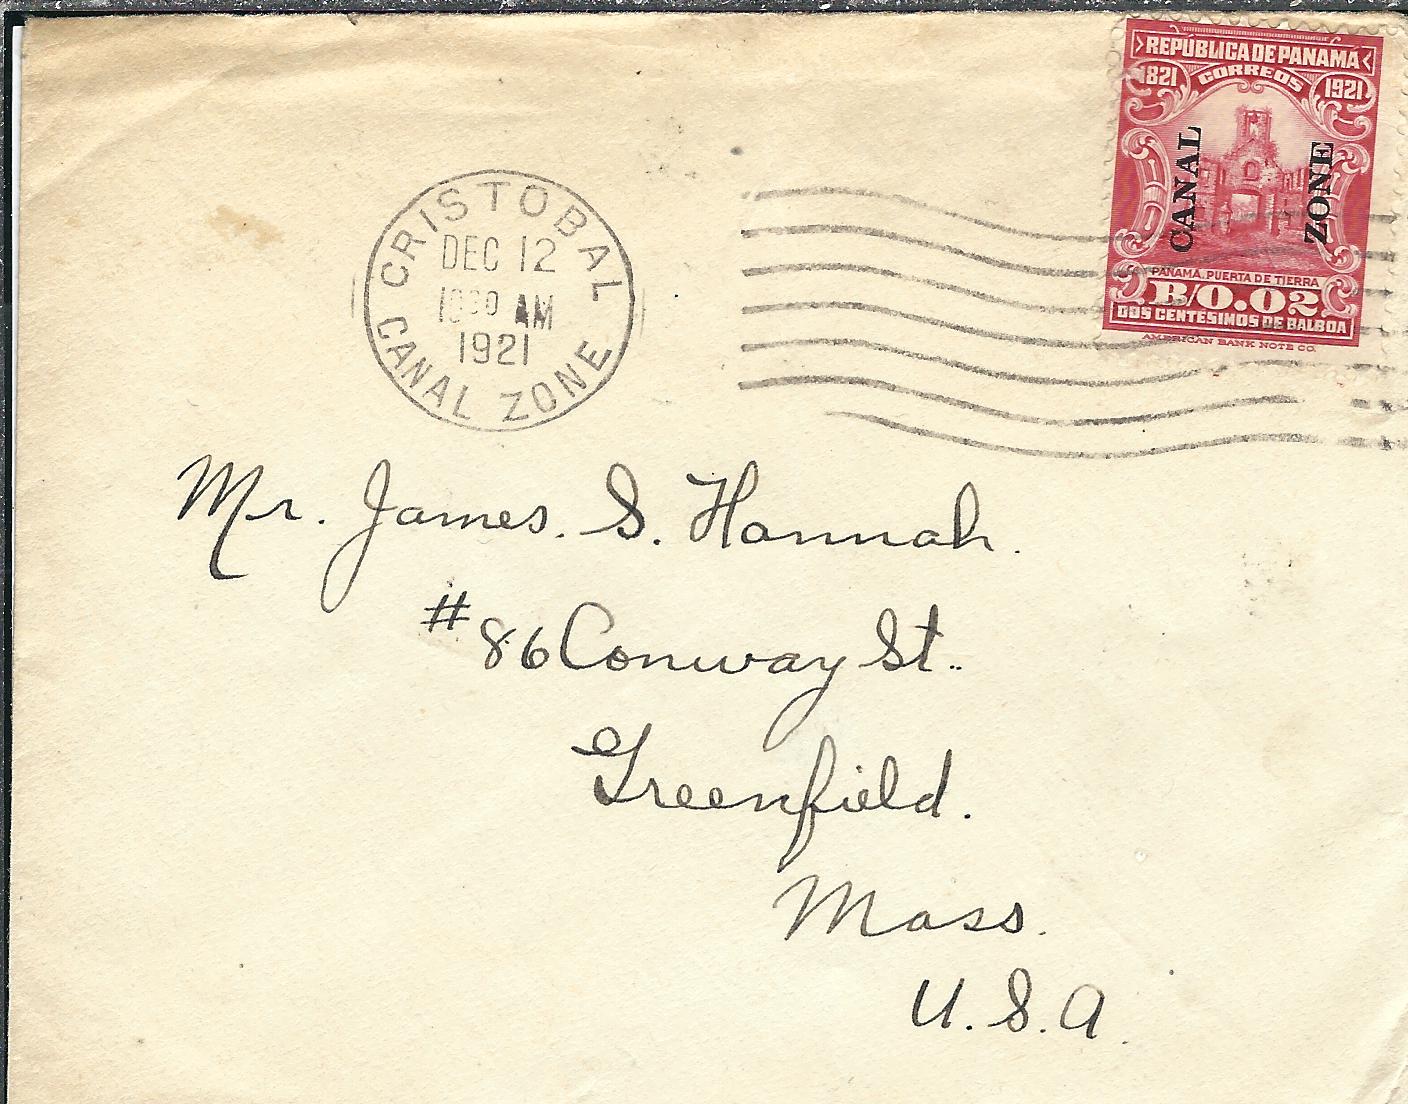 REPÚBLICA DE PANAMÁ
1821 CORREOS 1921
CANAL ZONE
PANAMÁ. PUERTA DE TIERRA
B/0.02
DOS CENTÉSIMOS DE BALBOA
AMERICAN BANK NOTE CO.
CRISTOBAL
DEC 12
AM
1921
CANAL ZONE
Mr. James. S. Hannah.
#86 Conway St..
Greenfield.
Mass.
U.S.A.